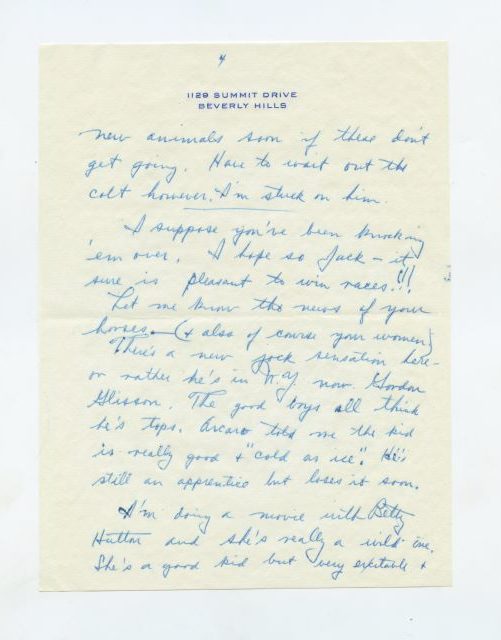 4
1129 SUMMIT DRIVE
BEVERLY HILLS
new animals soon if these don't
get going. Have to wait out the
colt however. I'm stuck on him.
I suppose you've been knocking
'em over. I hope so Jack - it
sure is pleasant to win races!!!
Let me know the news of your
horses. (& also of course your women)
There's a new jock sensation here -
or rather he's in N.Y. now. Gordon
Glisson. The good boys all think
he's tops. Arcaro told me the kid
is really good & "cold as ice". He's
still an apprentice but loses it soon.
I'm doing a movie with Betty
Hutton and she's really a wild one.
She's a good kid but very excitable &